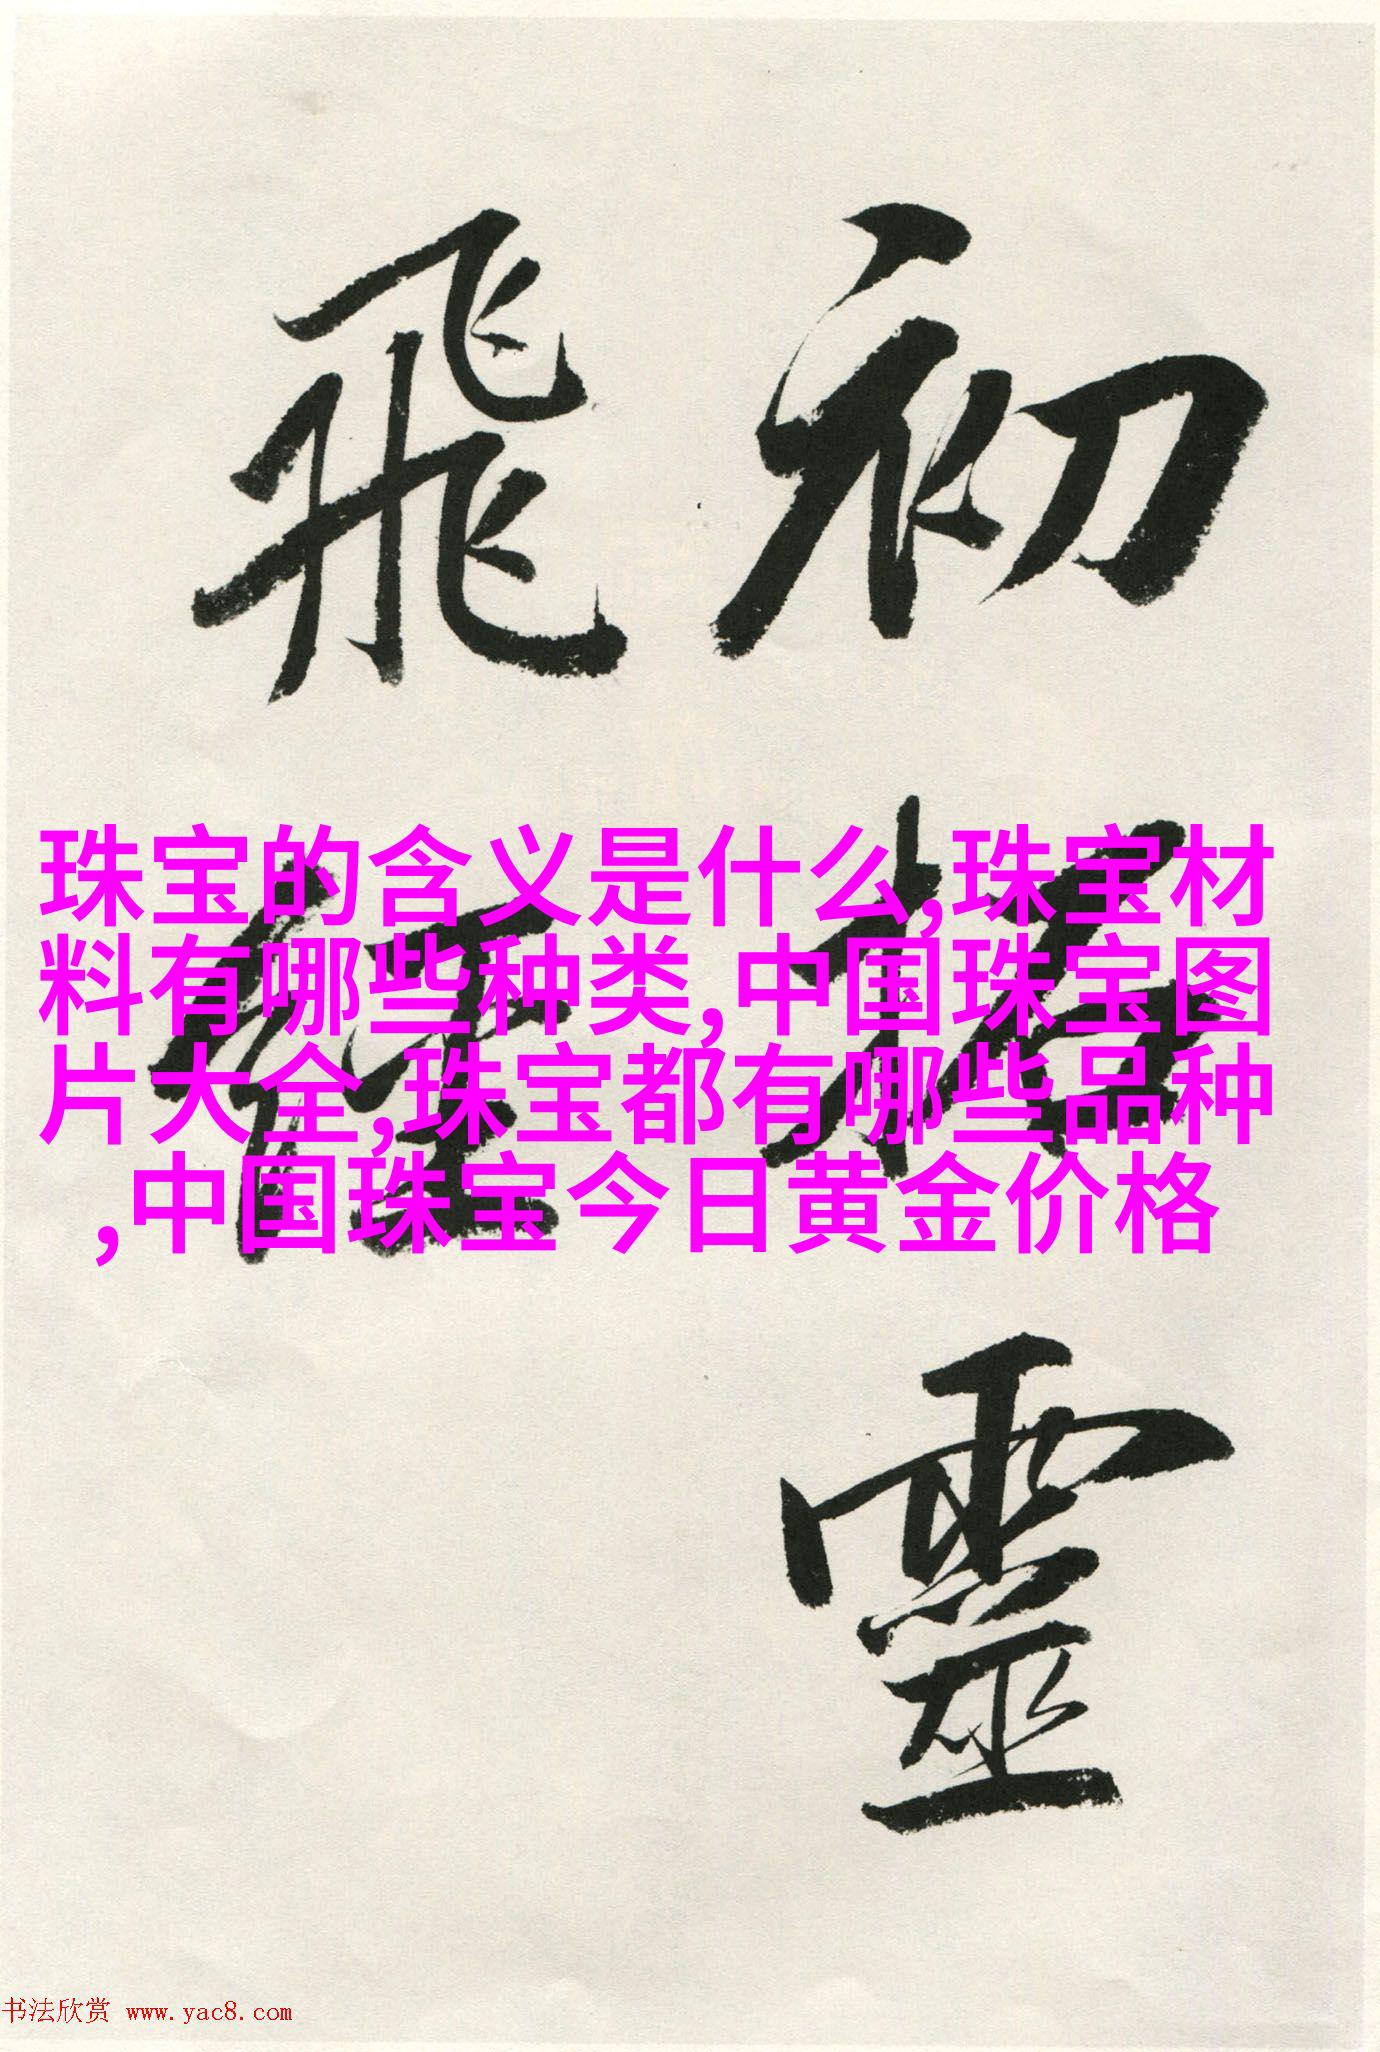 初靈
飛經
珠宝的含义是什么,珠宝材
料有哪些种类,中国珠宝图
片大全,珠宝都有哪些品种
,中国珠宝今日黄金价格
书法欣赏 www.yac8.com